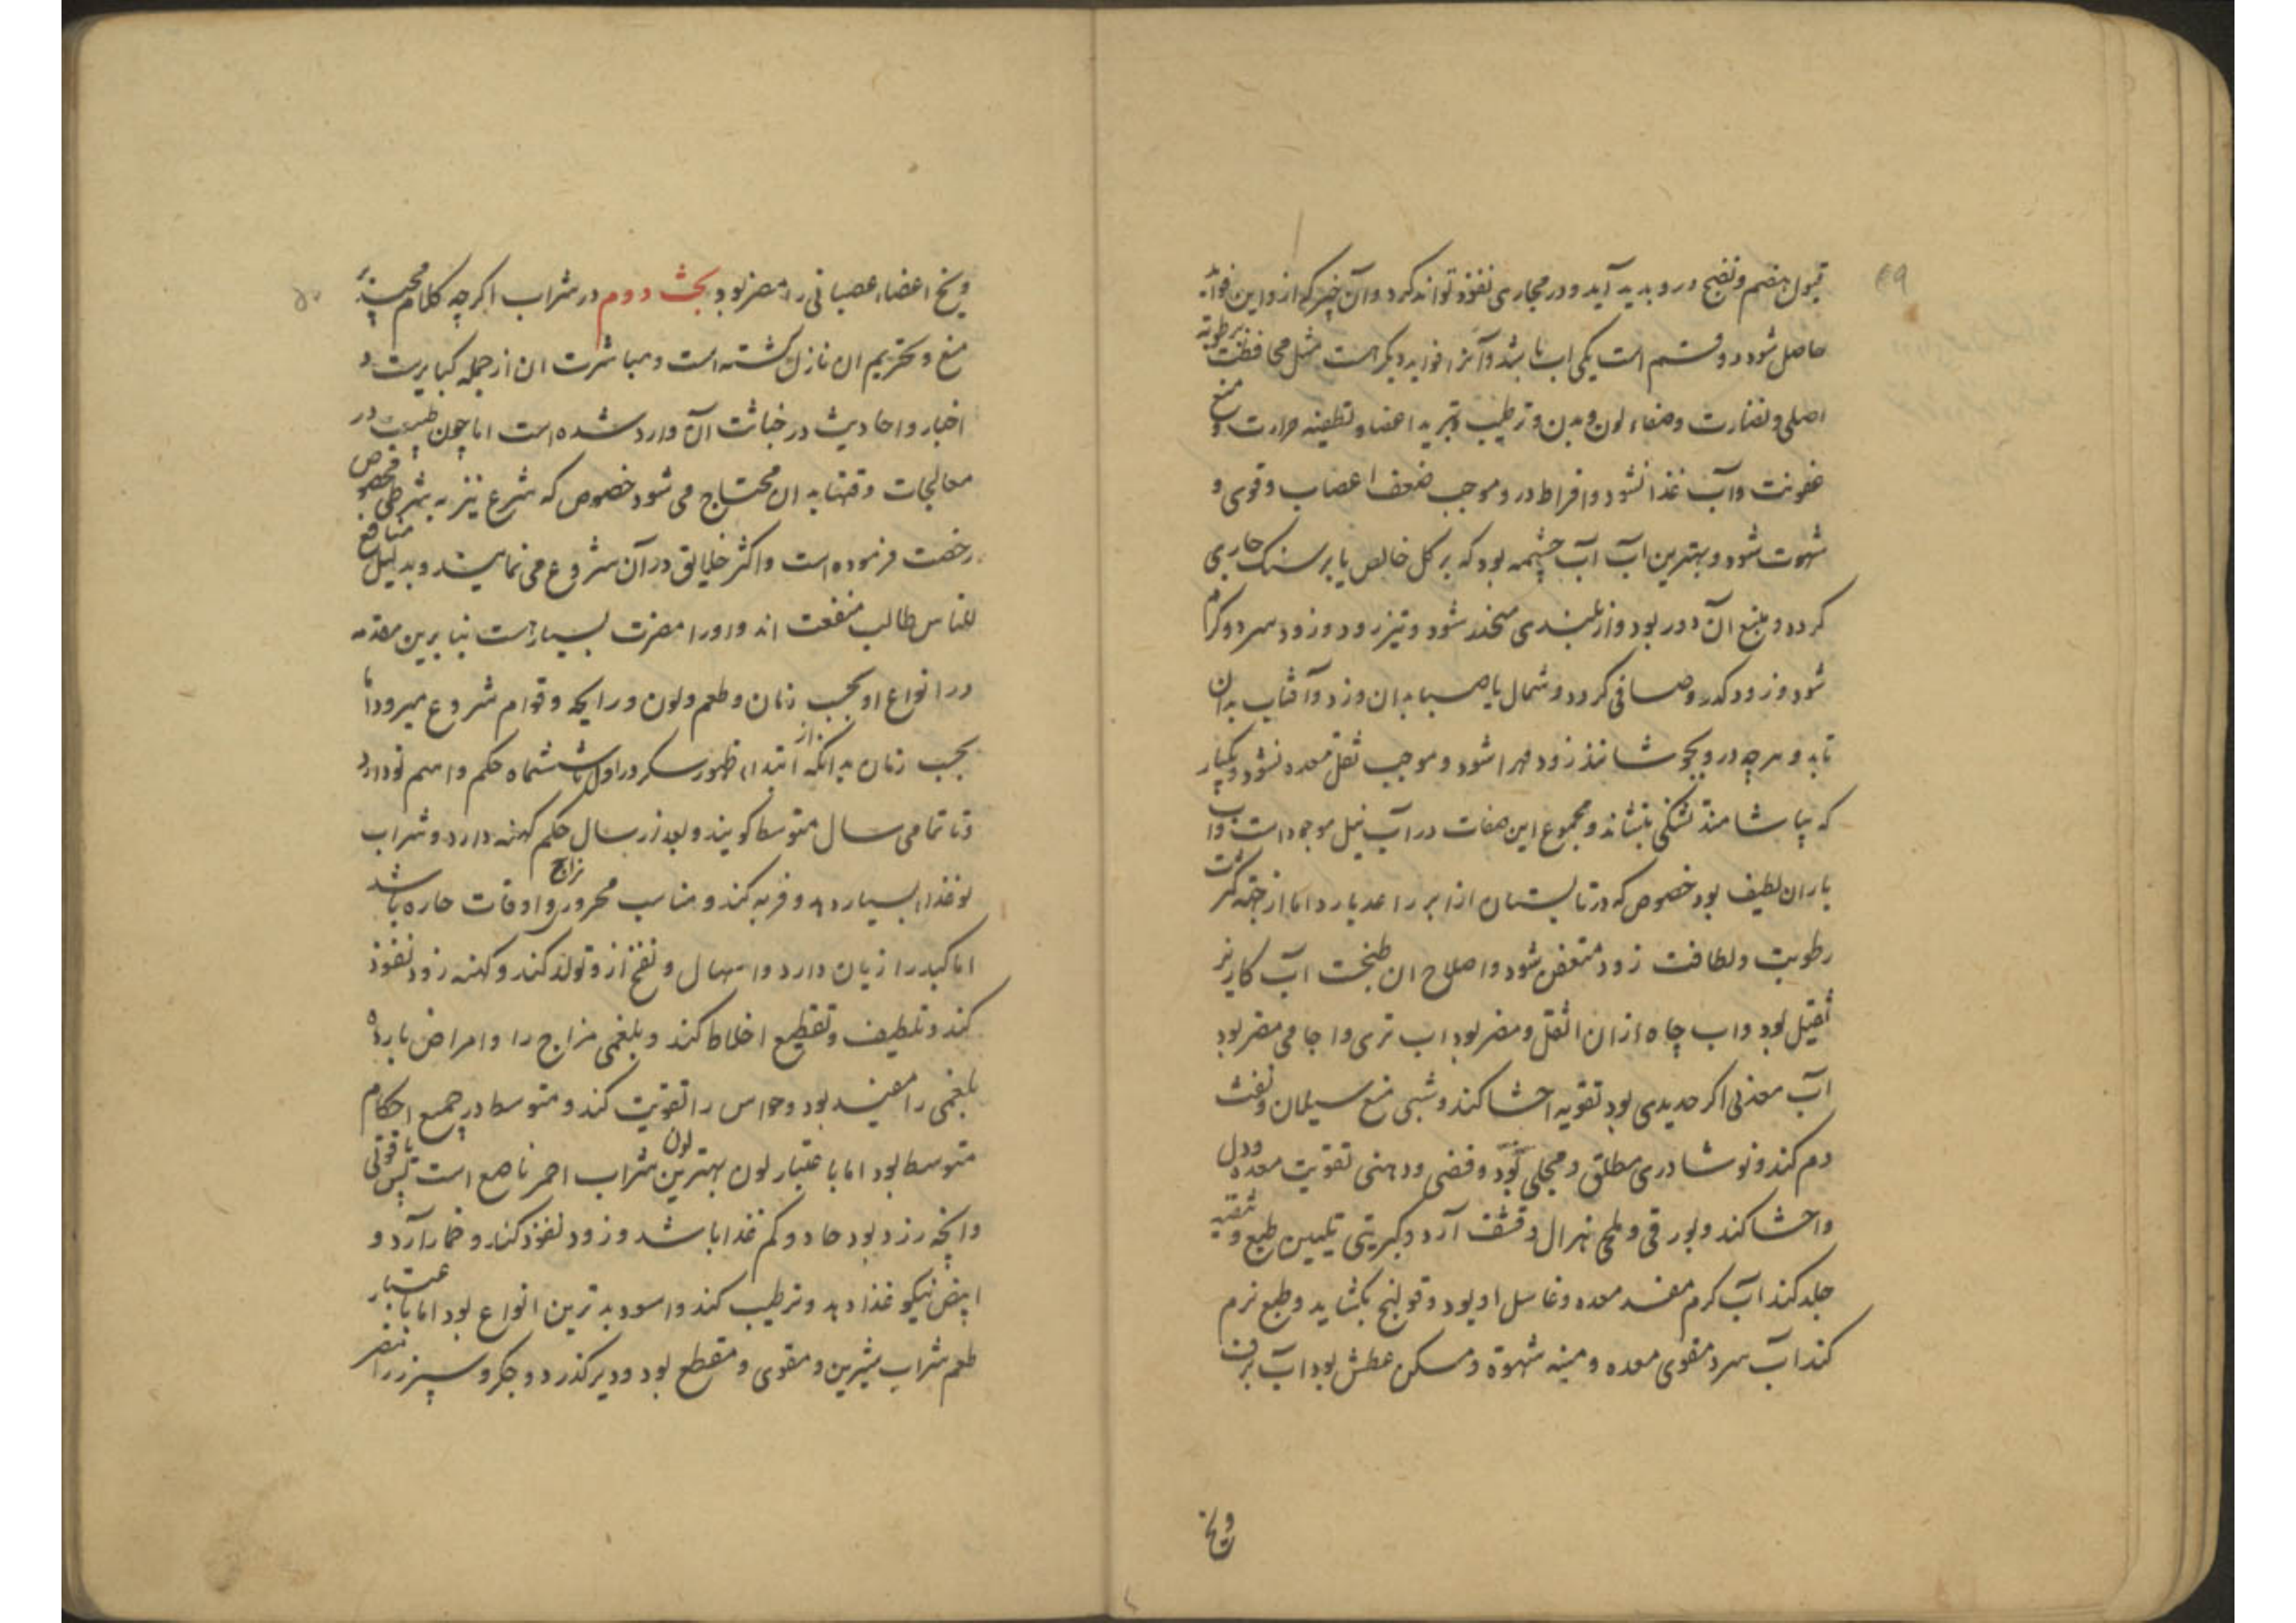 ۴۹
قبول هضم و نضج درو بدید آید و در مجاری نفوذ تواند کرد و آن چیز که ازو این فواید
حاصل شود دو قسم است یکی اب باشد و آنرا فواید دیگر هست مثل محافظت رطوبة
اصلی و نضارت وصفاء لون و بدن و ترطیب و تبرید اعضا و تطفیه حرارت و منع
عفونت و آب غذا نشود و افراط درو موجب ضعف اعصاب و قوی و
شهوت شود و بهترین آب آب چشمه بود که بر کل خالص یا بر سنک جاری
کردد و منبع آن دور بود و از بلندی منحدر شود و تیز رود و زود سرد و کرم
شود و زود کدر و صافی کردد و شمال یا صبا بدان وزد و آفتاب بدان
تابد و هرچه درو بجوشانند زود مهرا شود و موجب ثقل معده نشود و یکبار
که بیاشامند تشنکی بنشاند و مجموع این صفات در آب نیل موجود است و آب
باران لطیف بود خصوص که در تابستان از ابر راعد بارد اما از جهة کثرت
رطوبت و لطافت زود متعفن شود و اصلاح ان طبخت آب کاریز
ثقیل بود و اب چاه ازان اثقل و مضر بود اب تری و اجامی مضر بود
آب معدنی اکر حدیدی بود تقویه احشا کند و شبی منع سیلان و نفث
دم کند و نوشادری مطلق و مجلی بود و فضی و ذهبی تقویت معده و دل
و احشا کند و بورقی و ملحی هزال و قشف آرد و کبریتی تلیین طبع و تنقیه
جلد کند آب کرم مفسد معده و غاسل او بود و قولنج بکشاید و طبع نرم
کند آب سرد مقوی معده و منبه شهوة و مسکن عطش بود آب برف
و یخ
۵۰
و یخ اعضاء عصبانی را مضر بود بحث دوم در شراب اکرچه کلام مجید بر
منع و تحریم ان نازل کشته است و مباشرت ان از جمله کبایرست و
اخبار و احادیث در خباثت آن وارد شده است اما چون طبیب در
معالجات وقتها به ان محتاج می شود خصوص که شرع نیز به شرطی مخصوص
رخصت فرموده است و اکثر خلایق در آن شروع می نمایند و بدلیل منافع
للناس طالب منفعت اند و اورا مضرت بسیارست بنابرین مقدمه
در انواع او بحسب زمان و طعم و لون و رایحه و قوام شروع میرود اما
بحسب زمان بدانکه از ابتداء ظهور سکر در اول تا ششماه حکم و اسم نو دارد
و تا تمامی سال متوسط کویند و بعد از سال حکم کهنه دارد و شراب
نو غذاء بسیار دهد و فربه کند و مناسب محرور مزاج و اوقات حاره باشد
اما کبد را زیان دارد و اسهال و نفخ ازو تولد کند و کهنه زود نفوذ
کند و تلطیف و تقطیع اخلاط کند و بلغمی مزاج را و امراض بارده
بلغمی را مفید بود و حواس را تقویت کند و متوسط در جمیع احکام
متوسط بود اما باعتبار لون بهترین لون شراب احمر ناصع است پس یاقوتی
و انچه زرد بود حاد و کم غذا باشد و زود نفوذ کند و خمار آرد و
ابیض نیکو غذا دهد و ترطیب کند و اسود بدترین انواع بود اما باعتبار
طعم شراب شیرین و مقوی و مقطع بود و دیر کذرد و جکر و سپرز را مضر